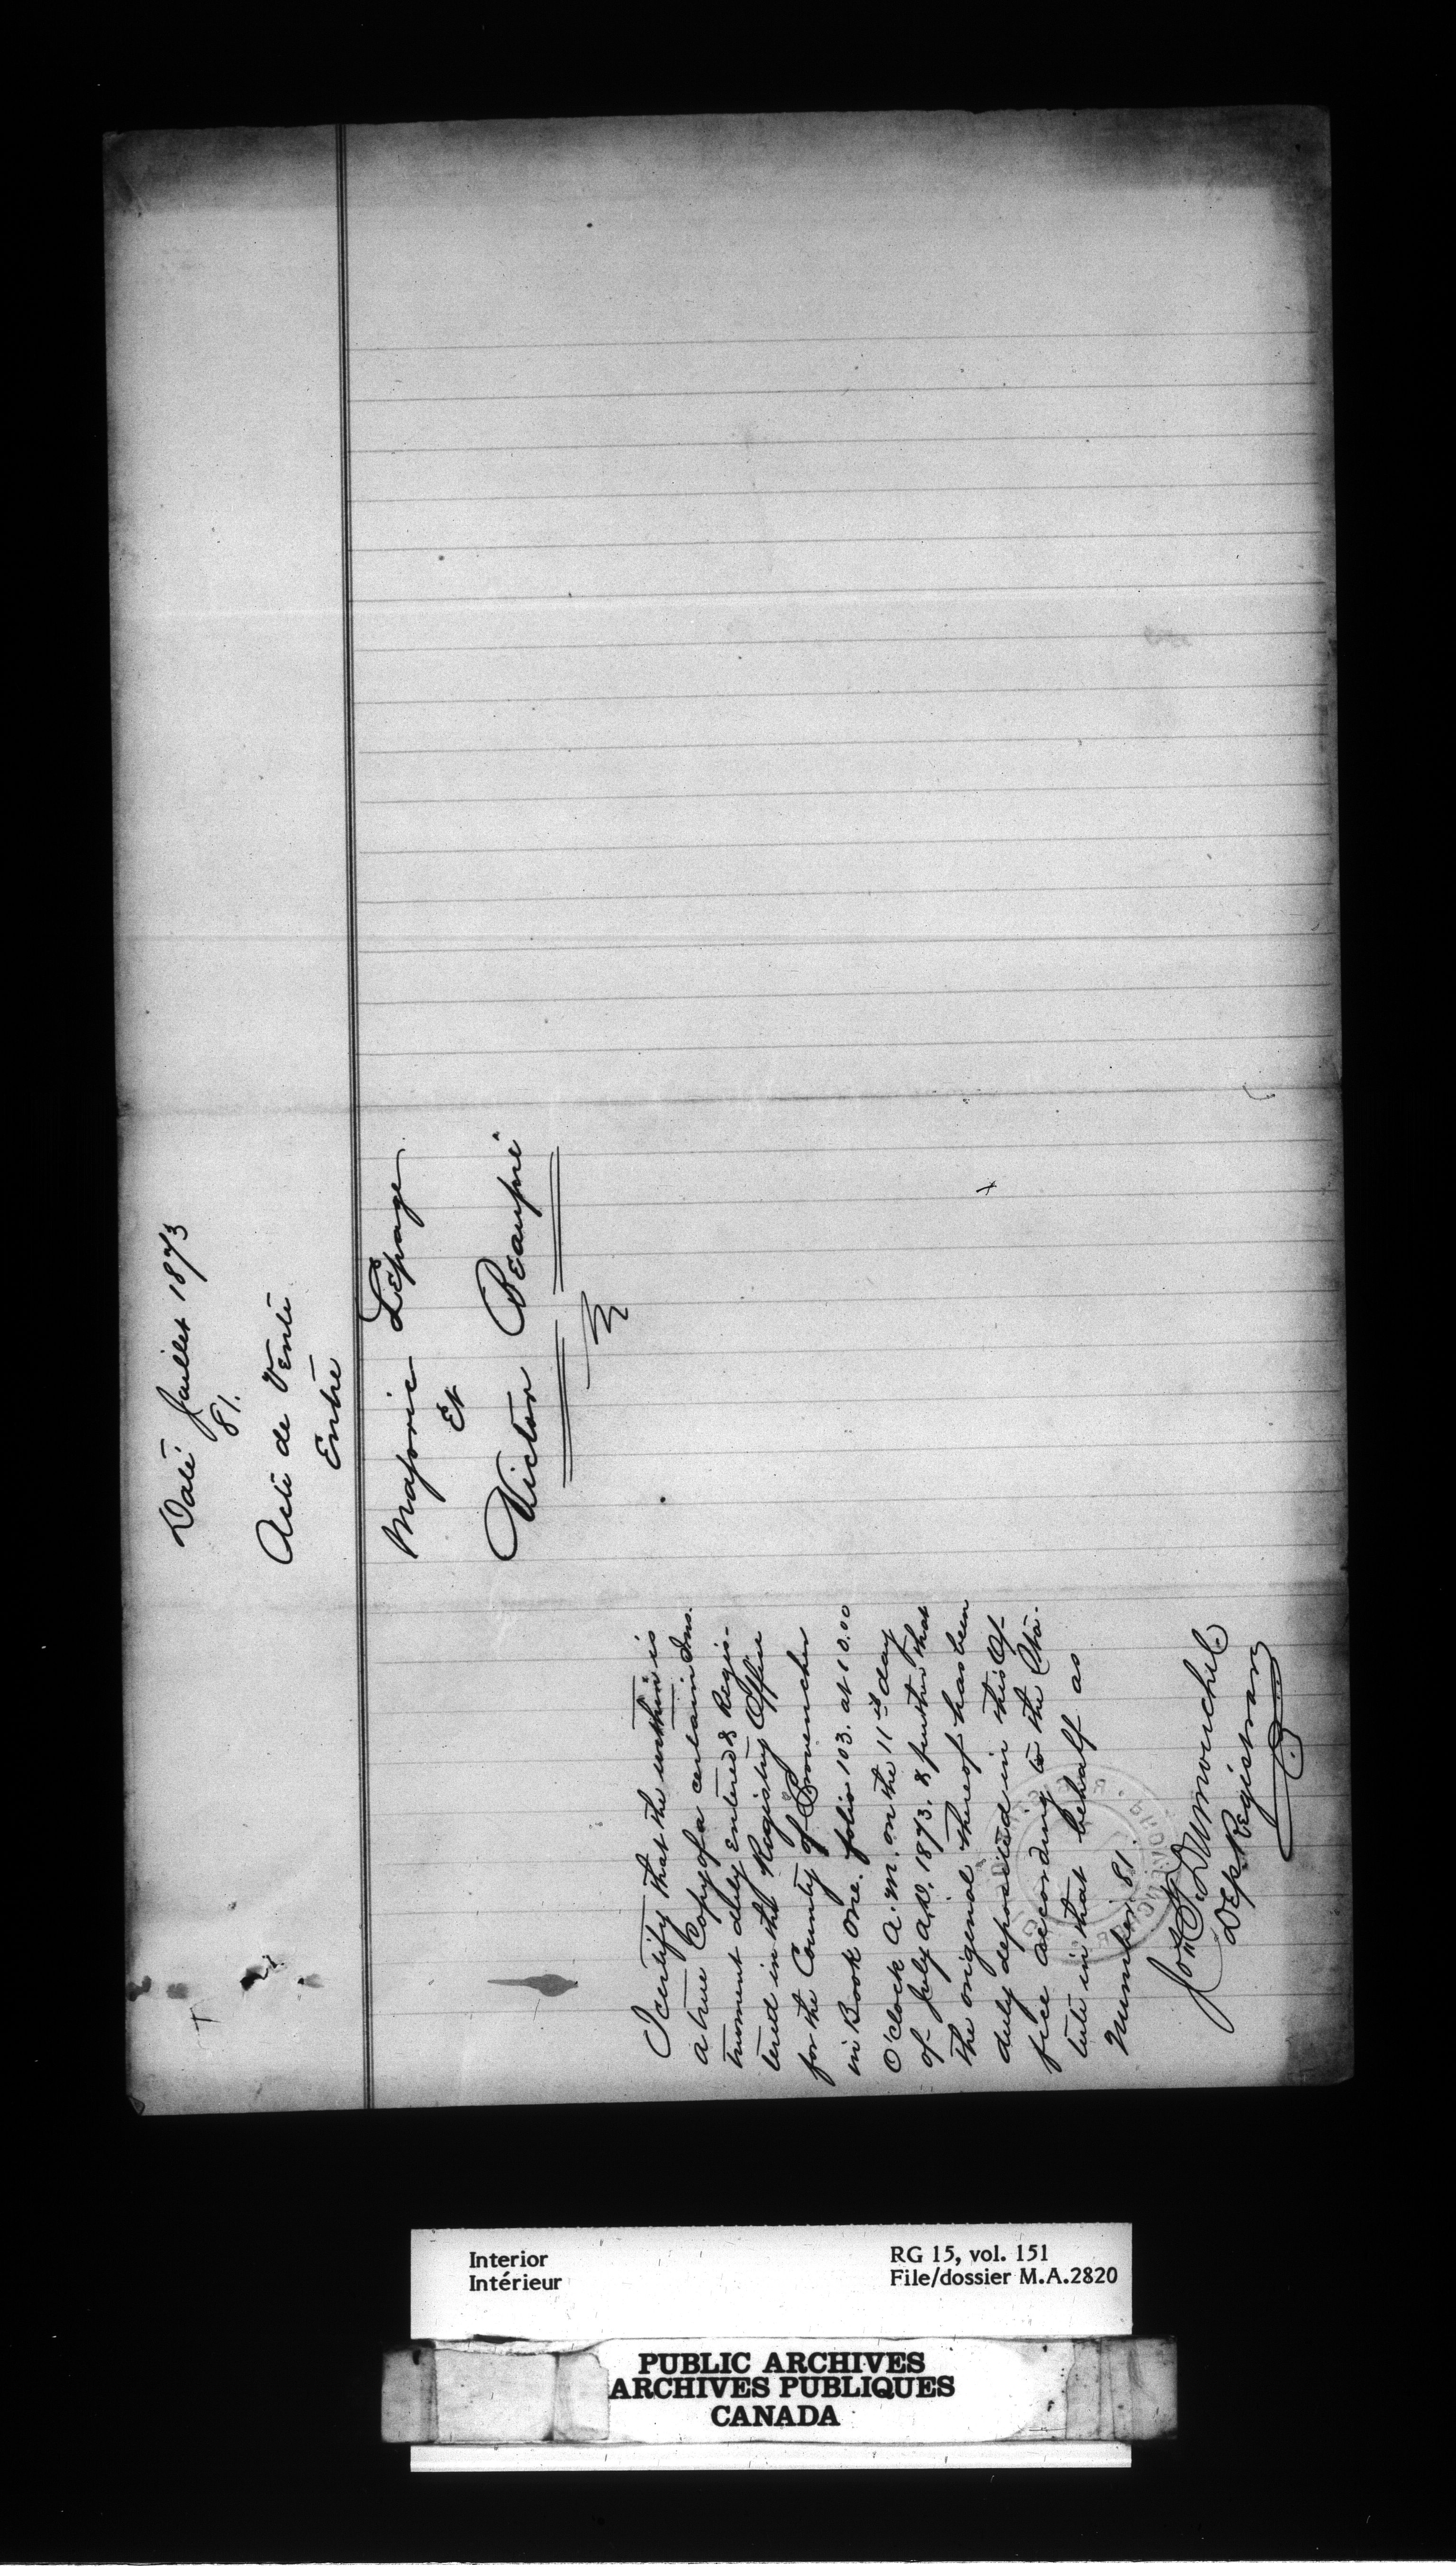 Daté Juillet 1873
81.
Acte de Vente
Entre
Majoric Lépage
Et
Victor Beaupré
I certify that the within is
a true Copy of a certain Ins-
trument duly entered & Regis-
tered in the Registry Office
for the County of Provencher
in Book One. folio 103. at 10.00
O'Clock A.M. on the 11th day
of July A.D. 1873. & further that
the original thereof has been
duly deposited in this Of-
fice according to the Sta-
tute in that behalf as
Number 81.
Dumouchel
Dep Registrar
Interior
Intérieur
RG 15, vol. 151
File/dossier M.A.2820
PUBLIC ARCHIVES
ARCHIVES PUBLIQUES
CANADA